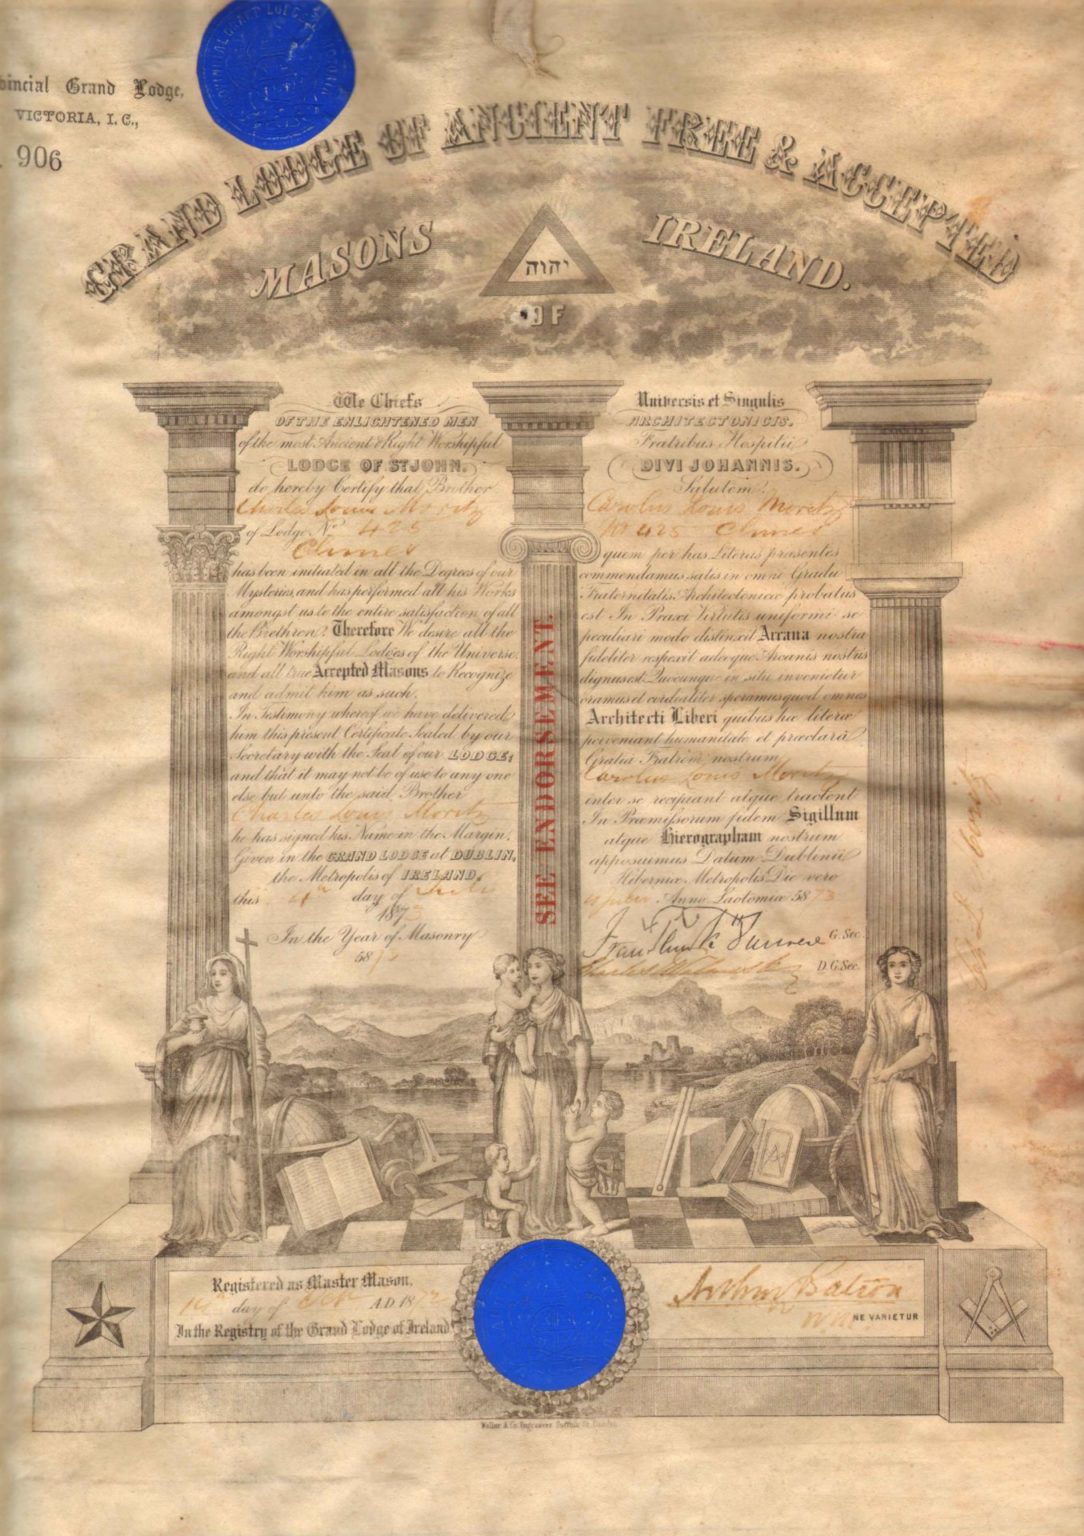 vincial Grand Lodge,
VICTORIA, I. C.,
906
GRAND LODGE OF ANCIENT FREE & ACCEPTED
MASONS IRELAND.
יהוה
OF
We Chiefs
OF THE ENLIGHTENED MEN
of the most Ancient & Right Worshipful
LODGE OF ST JOHN.
do hereby Certify that Brother
Charles Louis Moritz
of Lodge No 425
Clunes
has been initiated in all the Degrees of our
Mysteries, and has performed all his Works
amongst us to the entire satisfaction of all
the Brethren? Therefore We desire all the
Right Worshipful Lodges of the Universe,
and all true Accepted Masons to Recognize
and admit him as such.
In Testimony whereof we have delivered
him this present Certificate Sealed by our
Secretary with the Seal of our LODGE;
and that it may not be of use to any one
else but unto the said Brother
Charles Louis Moritz
he has signed his Name in the Margin.
Given in the GRAND LODGE at DUBLIN,
the Metropolis of IRELAND,
this 4th day of July
1873
In the Year of Masonry
58
SEE ENDORSEMENT.
Universis et Singulis
ARCHITECTONICIS.
Fratribus Hospitii
DIVI JOHANNIS.
Salutem!
Carolus Louis Moritz
No 425 Clunes
quem per has Literas præsentes
commendamus satis in omni Gradu
Fraternitatis Architectonicæ probatus
est In Praxi Virtutis uniformi se
peculiari modo distinxit Arcana nostra
fideliter respexit adeoque Arcanis nostris
dignus est Quocunque in situ invenietur
oramus et cordialiter speramus quod omnes
Architecti Liberi quibus hæ literæ
perveniant humanitate et præclarâ
Gratia Fratrem nostrum
Carolus Louis Moritz
inter se recipiant atque tractent
In Præmissorum fidem Sigillum
atque Hierographam nostrum
apposuimus Datum Dublinii
Hiberniæ Metropolis Die vero
4 Anno Laotomiæ 5873
G. Sec.
D. G. Sec.
Registered as Master Mason.
day of A.D. 187
In the Registry of the Grand Lodge of Ireland
NE VARIETUR